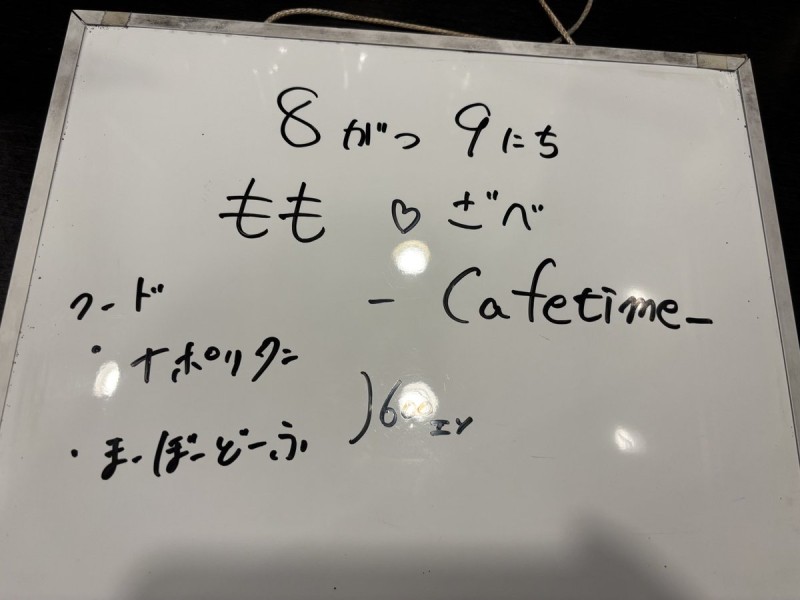 8がつ 9にち
もも ♡ ざべ
- Cafetime -
フード
・ナポリタン
・まーぼーどーふ
)600エン